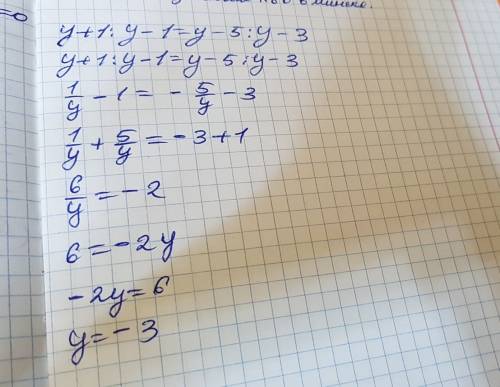 =0
в минске.
y+1:y-1=y-5:y-3
y+1:y-1=y-5:y-3
1/y - 1 = - 5/y - 3
1/y + 5/y = -3+1
6/y = -2
6=-2y
-2y=6
y=-3